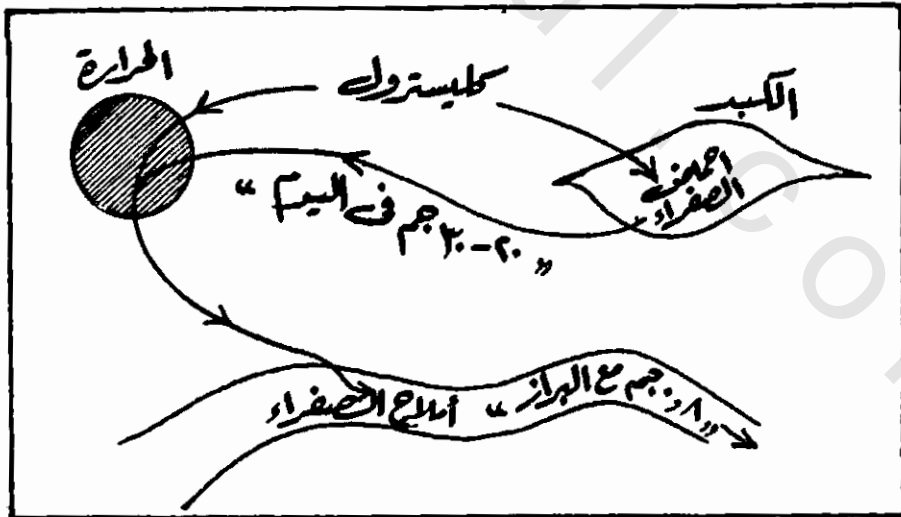 المرارة
كليسترول
الكبد
احماض
الصفراء
„ ٢٠-٣٠ جم فى اليوم “
أملاح الصفراء „ ٠,٨ جم مع البراز “